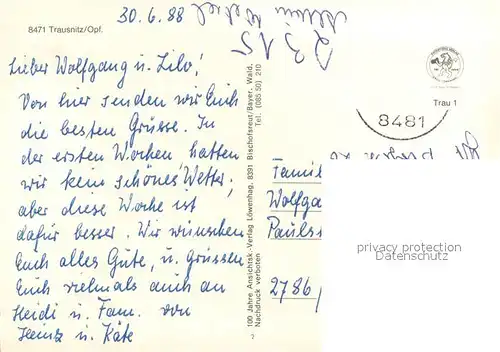 30.6.88
8471 Trausnitz/Opf.
Lieber Wolfgang u. Lilo!
Von hier senden wir Euch
die besten Grüsse. In
der ersten Wochen, hatten
wir kein schönes Wetter,
aber diese Woche ist
dafür besser. Wir wünschen
Euch alles Gute, u. Grüssen
Euch vielmals auch an
Heidi u. Fam. von
Heinz u. Käte
100 Jahre Ansichtsk.-Verlag Löwenhag, 8391 Bischofsreut/Bayer. Wald.
Tel. (085 50) 210
Nachdruck verboten
7
2315
Trau 1
8481
Famil
Wolfga
Pauls
2786
privacy protection
Datenschutz